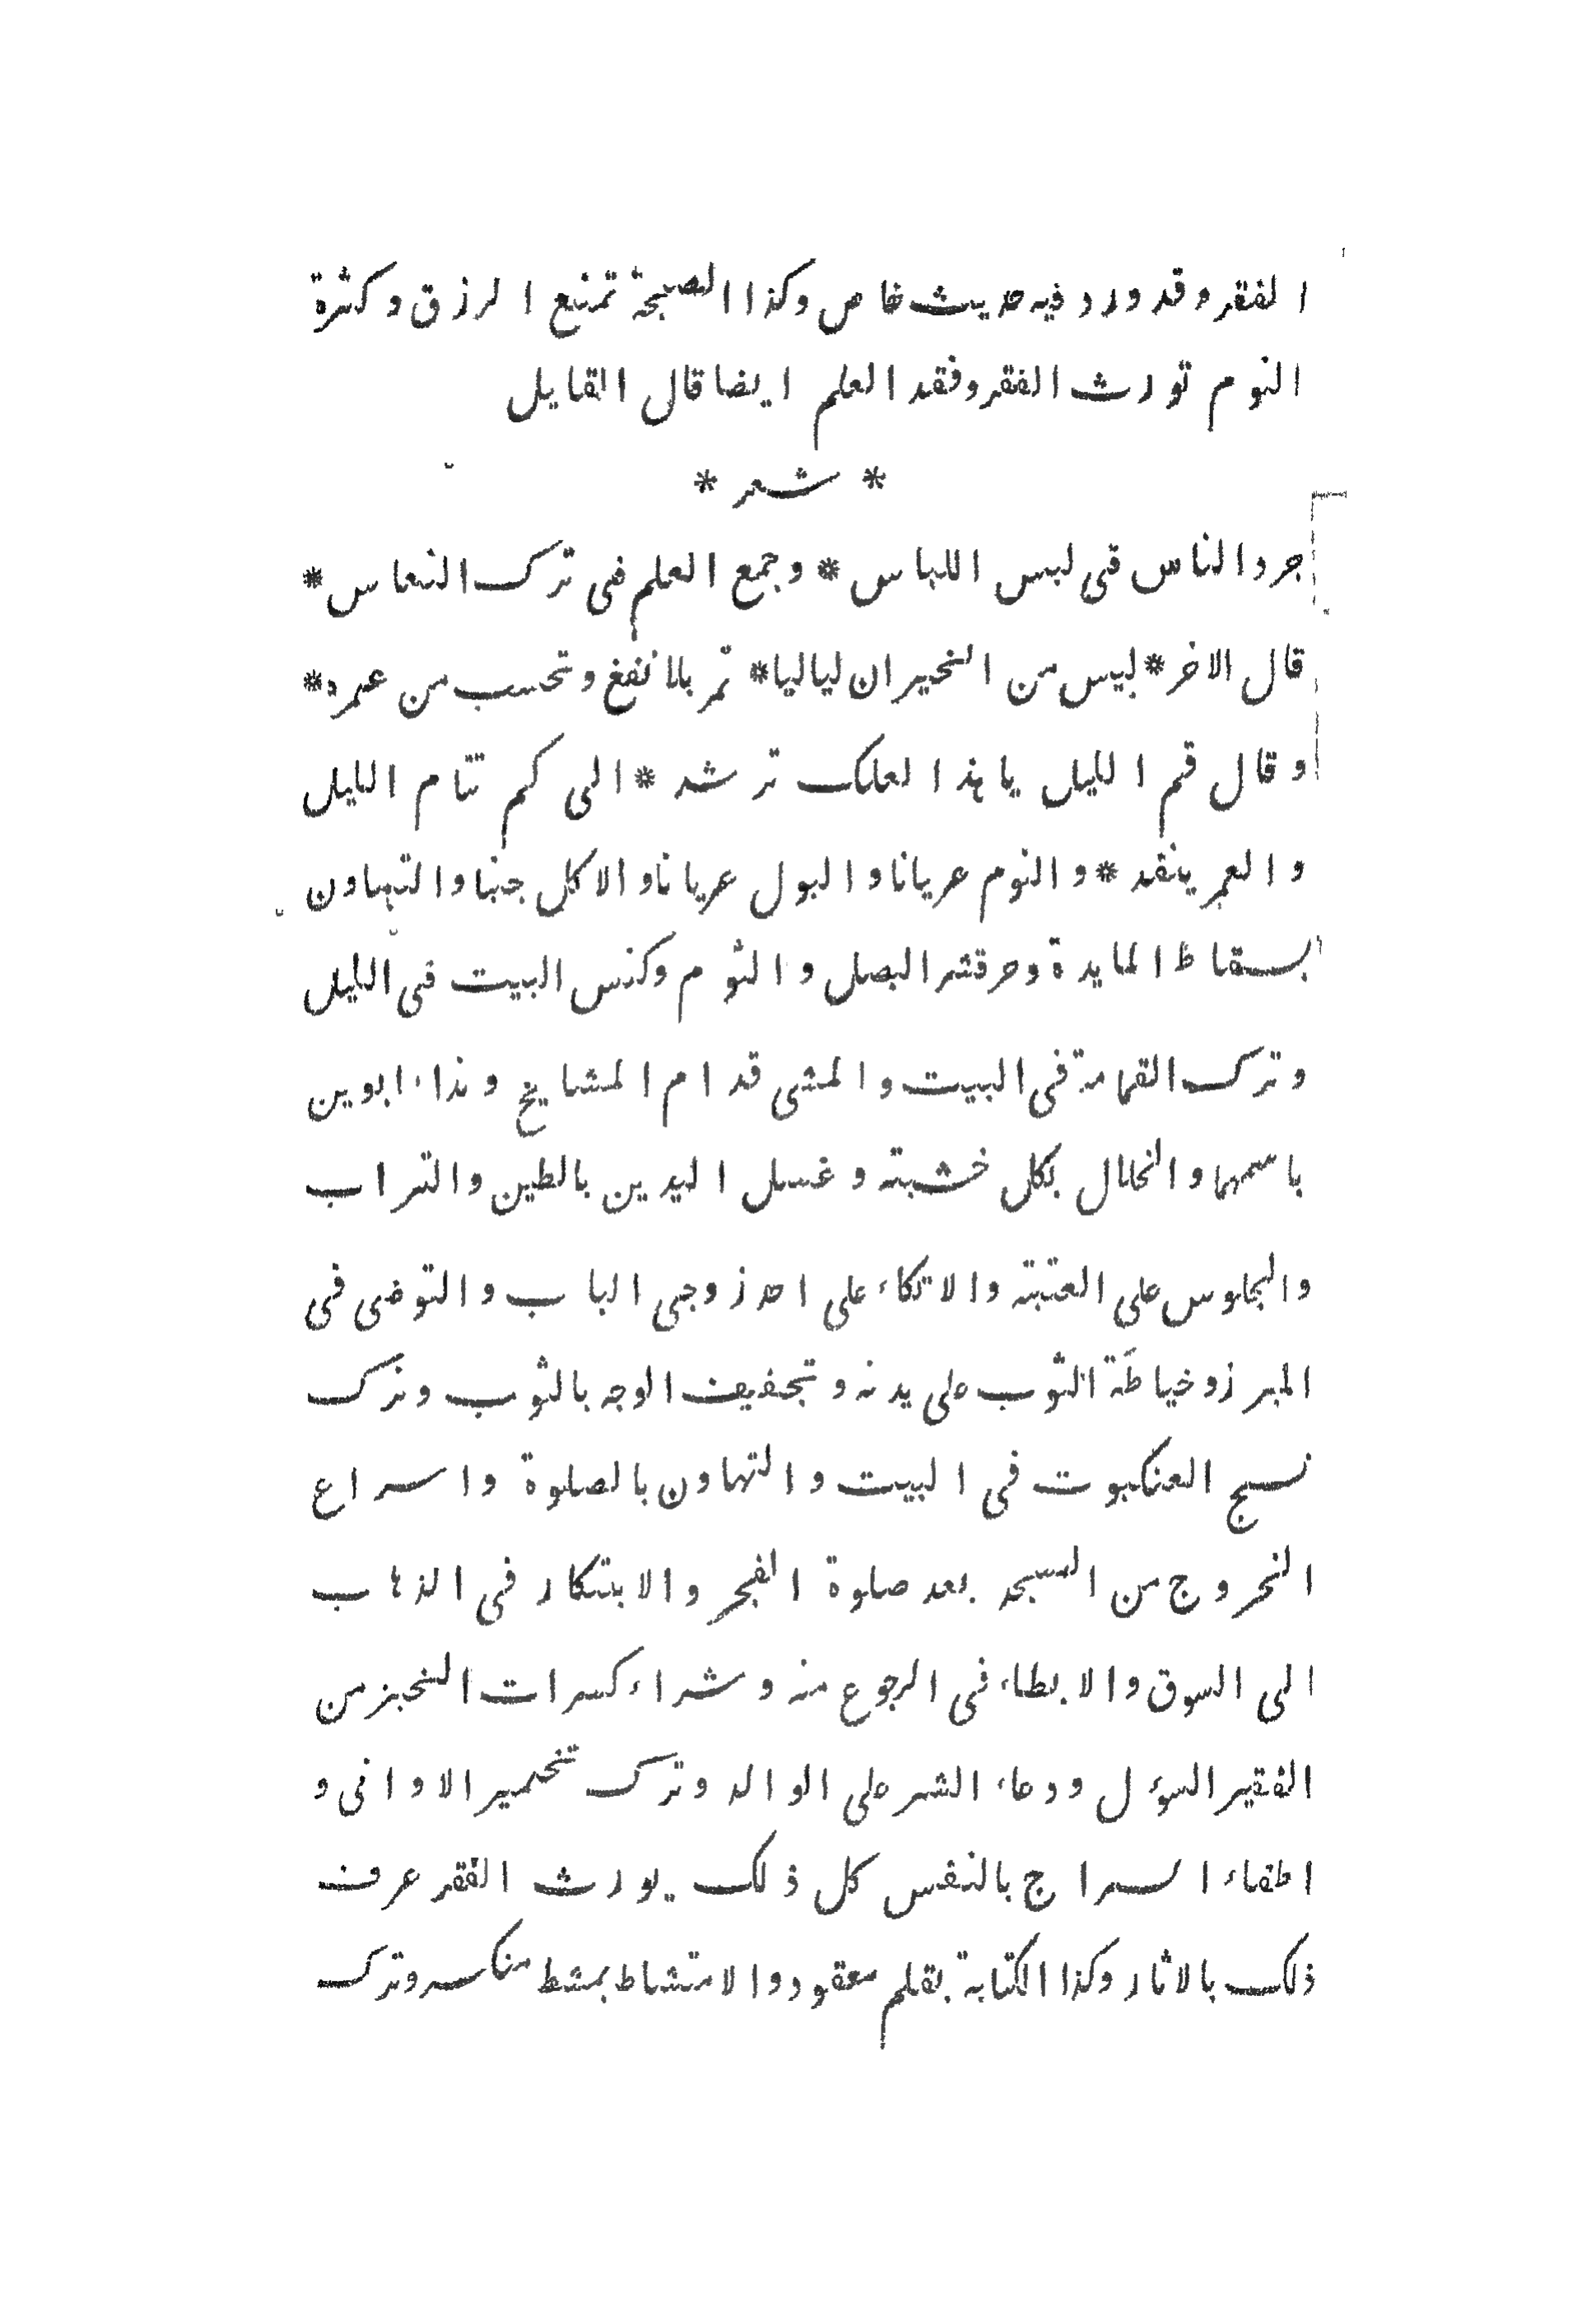 الفقر وقد ورد فيه حديث خاص وكذا الصبحة تمنع الرزق وكثرة
النوم تورث الفقر وفقد العلم ايضا قال القايل
* شعر *
جرد الناس فى لبس اللباس * وجمع العلم فى ترك النعاس *
قال الاخر * ليس من الخيران لياليا * تمر بلا نفغ وتحسب من عمرد *
وقال قم الليل يا هذا لعلك ترشد * الى كم تنام الليل
والعمر ينقد * والنوم عريانا والبول عريانا والاكل جنبا والتهاون
بسقاط المايدة وحرقشر البصل والثوم وكنس البيت فى الليل
وترك القمامة فى البيت والمشى قدام المشايخ ونداء ابوين
باسمهما والخلال بكل خشبته وغسل اليدين بالطين والتراب
والجلوس على العتبته والاتكاء على احد زوجى الباب والتوضى فى
المبرز وخياطة الثوب على يدنه وتجفيف الوجه بالثوب وترك
نسج العنكبوت فى البيت والتهاون بالصلوة واسراع
الخروج من المسجد بعد صلوة الفجر والابتكار فى الذهاب
الى السوق والابطاء فى الرجوع منه وشراء كسرات الخبز من
الفقير السوءل ودعاء الشر على الوالد وترك تخمير الاوانى و
اطفاء السراج بالنفس كل ذلك يورث الفقر عرف
ذلك بالاثار وكذا الكتابة بقلم معقود والامتشاط بمشط منكسر وترك